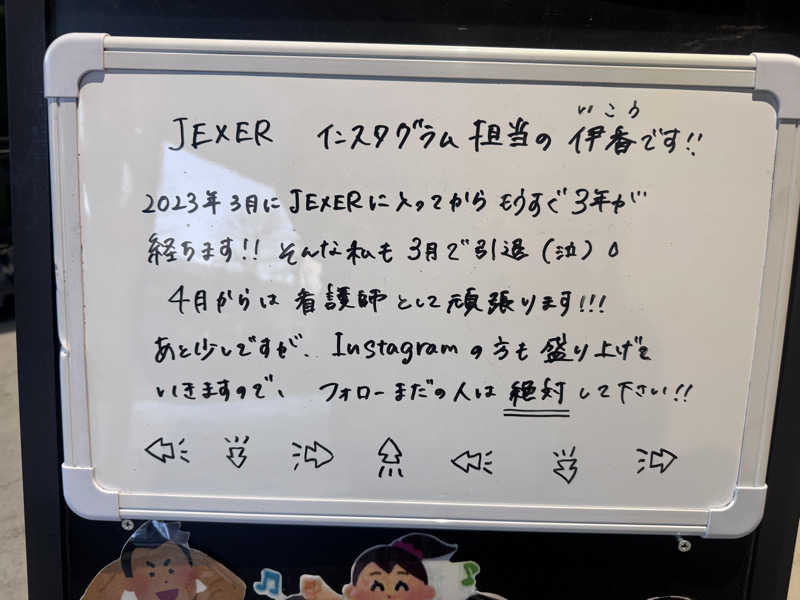 いこう
JEXER インスタグラム担当の伊香です!!
2023年3月にJEXERに入ってからもうすぐ3年が
経ちます!! そんな私も3月で引退(泣)。
4月からは看護師として頑張ります!!!
あと少しですが、Instagramの方も盛り上げて
いきますので、フォローまだの人は絶対して下さい!!